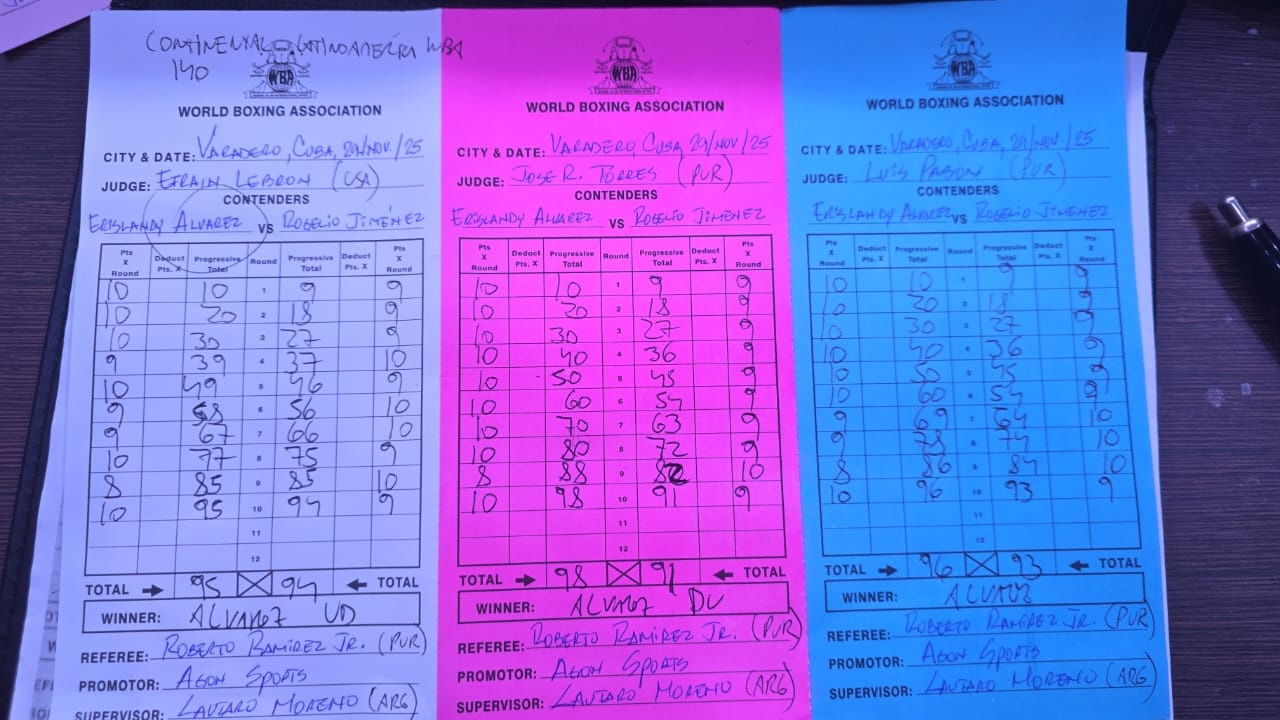 CONTINENTAL LATINOAMERICA WBA
140
WBA
WORLD BOXING ASSOCIATION
CITY & DATE: VARADERO, CUBA, 29/NOV./25
JUDGE: EFRAIN LEBRON (USA)
CONTENDERS
ERISLANDY ALVAREZ VS ROGELIO JIMÉNEZ
Pts X Round Deduct Pts. X Progressive Total Round Progressive Total Deduct Pts. X Pts X Round
10 10 1 9 9
10 20 2 18 9
10 30 3 27 9
9 39 4 37 10
10 49 5 46 9
9 58 6 56 10
9 67 7 66 10
10 77 8 75 9
8 85 9 85 10
10 95 10 94 9
11
12
TOTAL 95 94 TOTAL
WINNER: ALVAREZ UD
REFEREE: ROBERTO RAMIREZ JR. (PUR)
PROMOTOR: AGON SPORTS
SUPERVISOR: LAUTARO MORENO (ARG)
WBA
WORLD BOXING ASSOCIATION
CITY & DATE: VARADERO, CUBA, 29/NOV/25
JUDGE: JOSE R. TORRES (PUR)
CONTENDERS
ERISLANDY ALVAREZ VS ROGELIO JIMENEZ
Pts X Round Deduct Pts. X Progressive Total Round Progressive Total Deduct Pts. X Pts X Round
10 10 1 9 9
10 20 2 18 9
10 30 3 27 9
10 40 4 36 9
10 50 5 45 9
10 60 6 54 9
10 70 7 63 9
10 80 8 72 9
8 88 9 82 10
10 98 10 91 9
11
12
TOTAL 98 91 TOTAL
WINNER: ALVAREZ DU
REFEREE: ROBERTO RAMIREZ JR. (PUR)
PROMOTOR: AGON SPORTS
SUPERVISOR: LAUTARO MORENO (ARG)
WBA
WORLD BOXING ASSOCIATION
CITY & DATE: VARADERO, CUBA, 29/NOV/25
JUDGE: LUIS PABON (PUR)
CONTENDERS
ERISLANDY ALVAREZ VS ROGELIO JIMENEZ
Pts X Round Deduct Pts. X Progressive Total Round Progressive Total Deduct Pts. X Pts X Round
10 10 1 9 9
10 20 2 18 9
10 30 3 27 9
10 40 4 36 9
10 50 5 45 9
10 60 6 54 9
9 69 7 64 10
9 78 8 74 10
8 86 9 84 10
10 96 10 93 9
11
12
TOTAL 96 93 TOTAL
WINNER: ALVAREZ
REFEREE: ROBERTO RAMIREZ JR. (PUR)
PROMOTOR: AGON SPORTS
SUPERVISOR: LAUTARO MORENO (ARG)